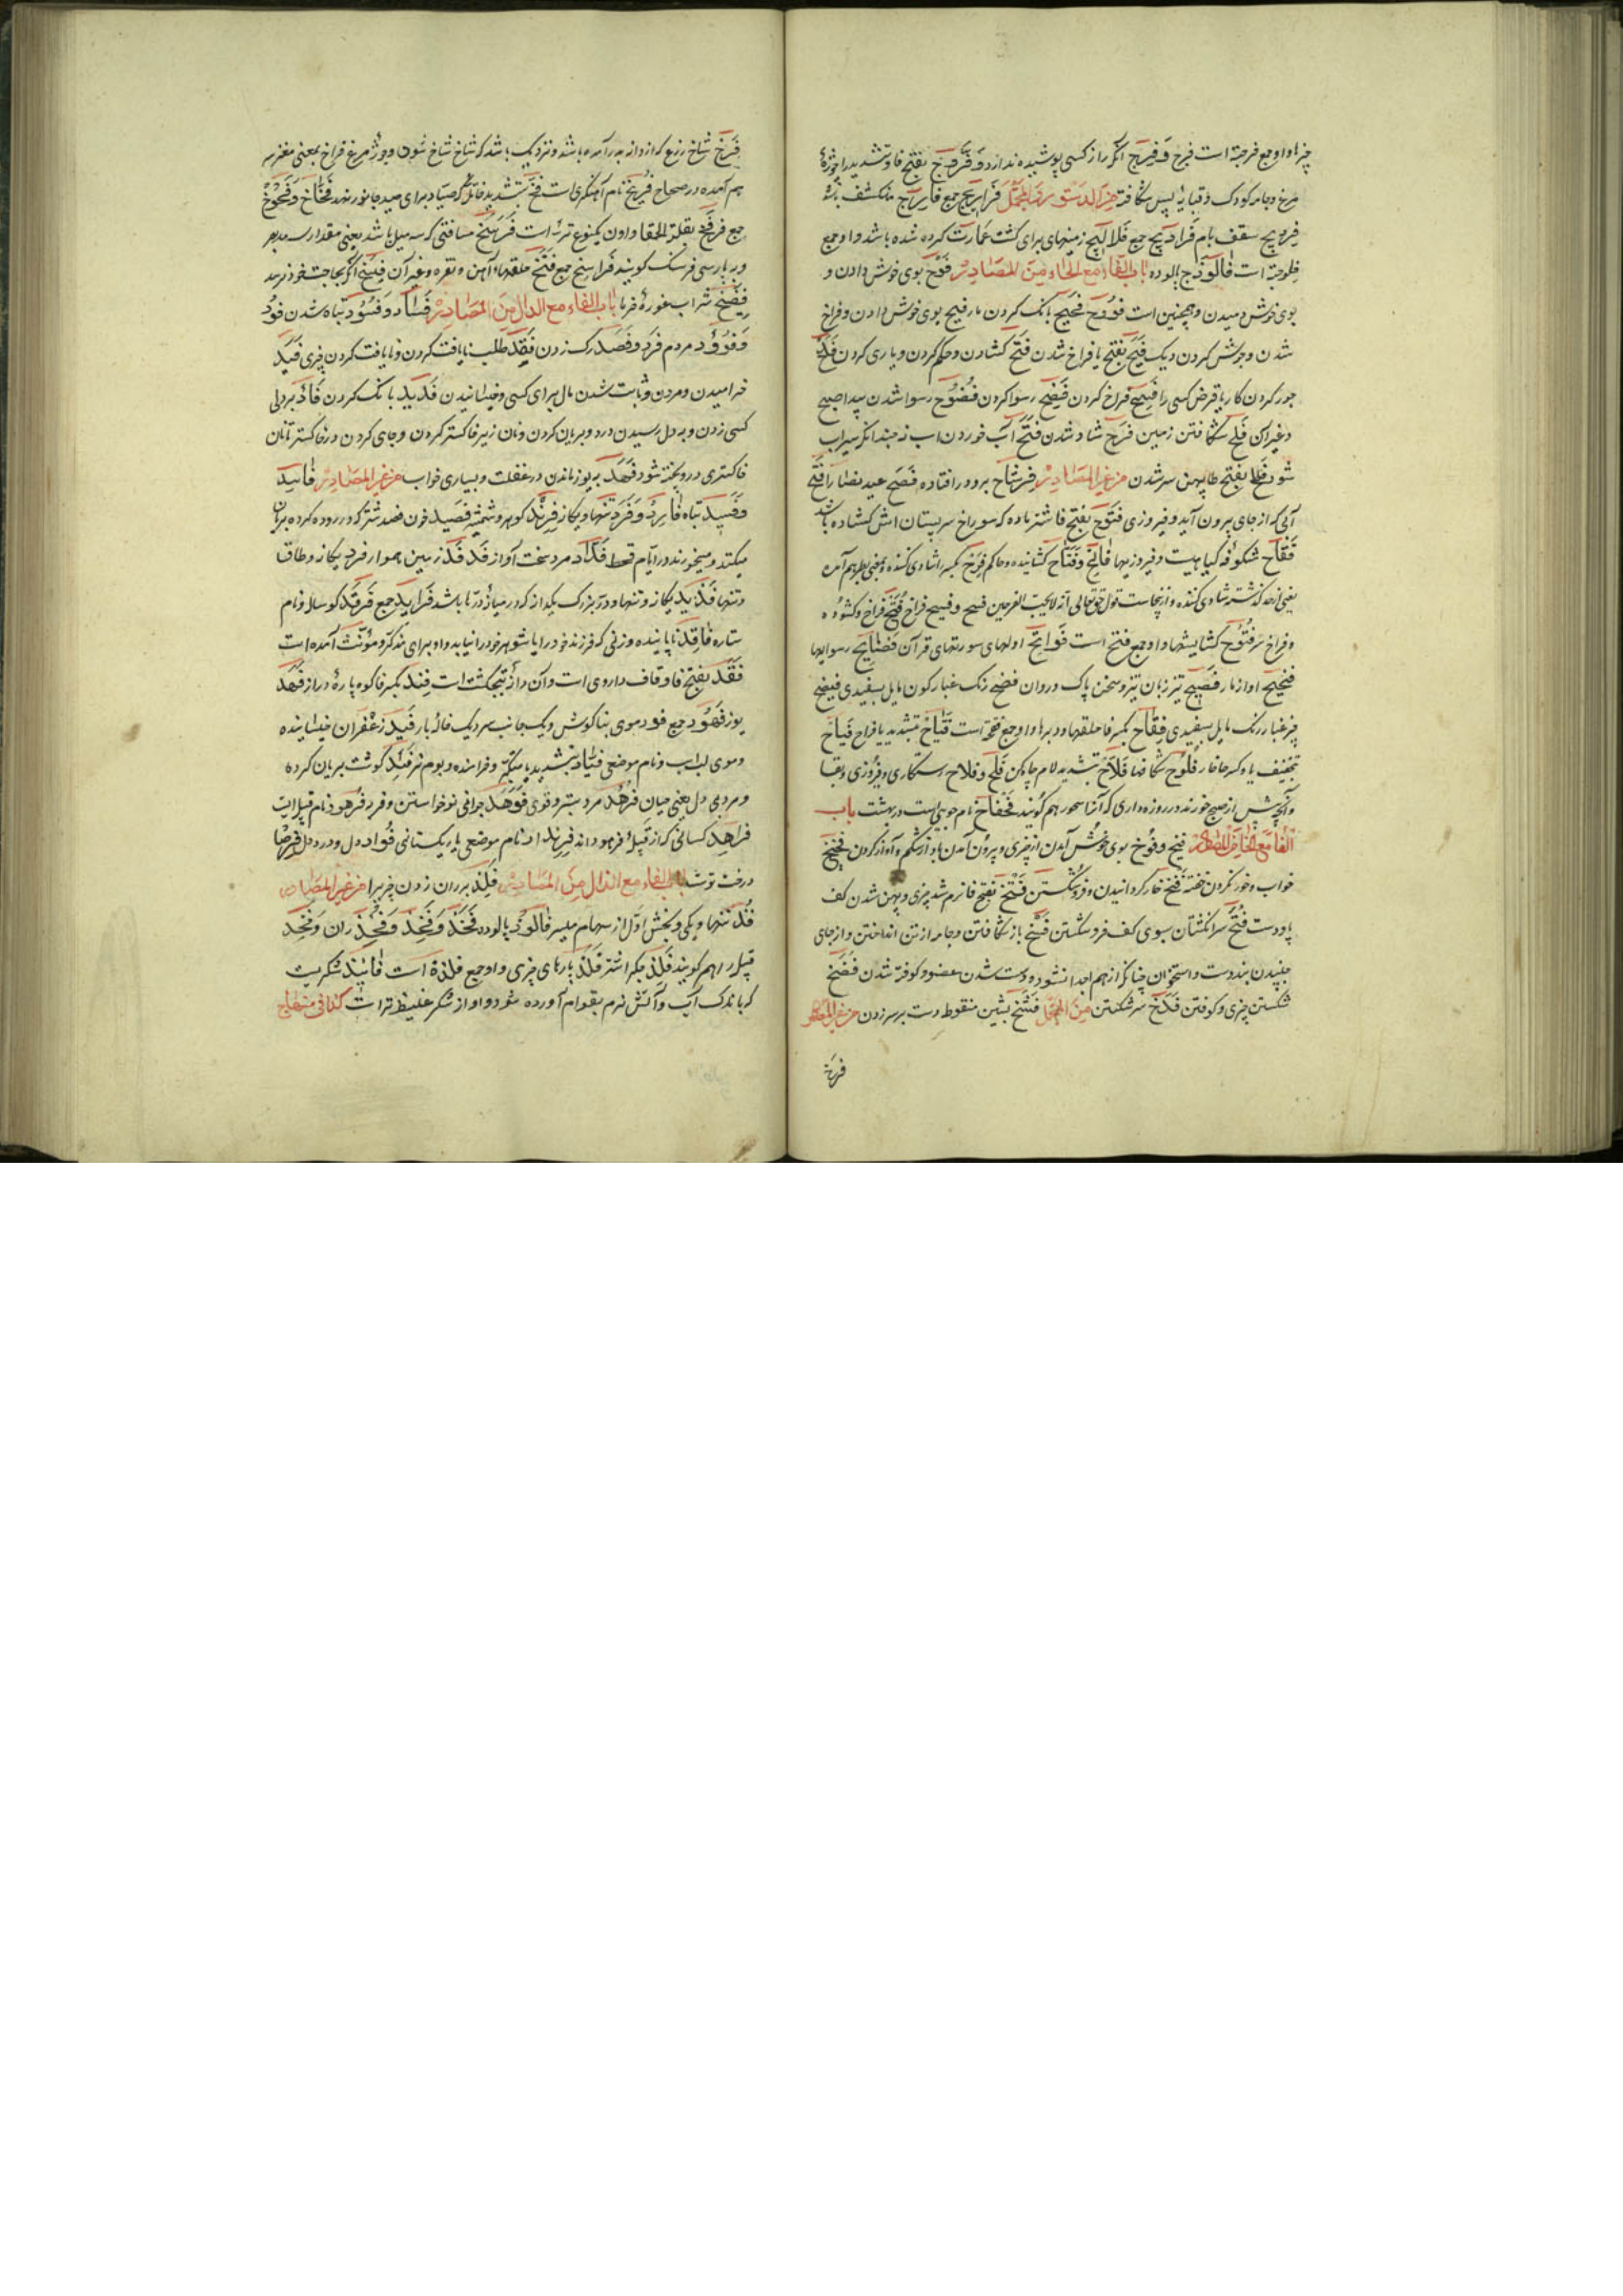 چیزها و او جمع فرجة است فیرج و فیریج آنکه راز کسی پوشیده ندارد و فروج بفتح فا و تشدید را چوزهٔ
مرغ و جامه کودک و قبایه پس شکافته من الدستور من المجمل فراریج جمع فاریج منکشف شده
فریویج سقف بام فرادیج جمع فلالیج زمینهای برای کشت عمارت کرده شده باشد و او جمع
فلوجة است فالوذج پالوده باب الفاء مع الحاء من المصادر فوح بوی خوش دادن و
بوی خوش دمیدن و همچنین است فؤوح فحیح بانک کردن مار فیح بوی خوش دادن و فراخ
شدن و جوش کردن دیک فیح بفتح یا فراخ شدن فتح کشادن و حکم کردن و یاری کردن فدح
جور کردن کار یا قرض کسی را فسح فراخ کردن فضح رسوا کردن فضوح رسوا شدن پیدا صبح
و غیر آن فلح شکافتن زمین فرح شاد شدن فتح آب خوردن اسب نه چندانکه سیراب
شود فطح بفتح طا پهن سر شدن من غیر المصادر فرشاح برو در افتاده فصح عید نصارا فتح
آبی که از جای بیرون آید و فیروزی فتوح بفتح فا شتر ماده که سوراخ سر پستان اش کشاده باشد
فقاح شکوفه کیاهیست و فیروزیها فاتح و فتاح کشاینده و حاکم فرح بکسر را شادی کننده و بمعنی بطر هم آمده
یعنی از حد گذشته شادی کننده و از پنجاست قول حق تعالی ان الله لایحب الفرحین فسح و فسیح فراخ فتح فراخ و کشوده
و فراخ سر فتوح کشایشها و او جمع فتح است فواتح اولهای سورتهای قرآن فضایح رسواییها
فحیح آواز مار فصیح تیز زبان تیز و سخن پاک و روان فضح رنک غبار کون مایل بسفیدی فیضح
چیز غبار رنک مایل بسفیدی فقاح بکسر فا حلقها و دبرها و او جمع فقحة است فیاح بتشدید یا فراخ فیاح
بتخفیف یا و کسر حا غار فلوح شکافها فلاح بتشدید لام چاه کن فلح و فلاح رستکاری و فیروزی و بقا
و آنچه پیش از صبح خورند در روزه داری که آنرا سحور هم گویند فحفاح نام جویی است در بهشت باب
الفاء مع الخاء من المصادر فیخ و فوخ بوی خوش آمدن از چیزی و بیرون آمدن باد از شکم و آواز کردن فخیخ
خواب و خور کردن خفته فنخ خار کردانیدن و فرو شکستن فتخ بفتح فا نرم شد چیزی و پهن شدن کف
پا و دست فتخ سر انکشتان بسوی کف فرو شکستن فسخ باز شکافتن و جامه از تن انداختن و از جای
جنبیدن بند دست و استخوان چنانکه از هم جدا نشود و سست شدن عضو و کوفته شدن فضخ
شکستن چیزی و کوفتن فدخ سر شکستن من المجمل فشخ بشین منقوط دست بر سر زدن من غیر المصادر
فرخ
فرخ شاخ زرع که از دانه برآمده باشد و نزدیک باشد که شاخ شاخ شود و چوزهٔ مرغ فراخ بمعنی مغز سر
هم آمده در صحاح فریخ نام آهنکری است فخ بتشدید خا تله که صیاد برای صید جانور نهد فخاخ و فخوخ
جمع فرفخ بقلة الحمقا و اون یکنوع تره است فرسخ مسافتی که سه میل باشد یعنی مقدار سه
و بپارسی فرسنک کویند فراسخ جمع فتخ حلقها آهن و نقره و غیر آن فسخ آنکه بحاجت خود نرسد
فضیخ شراب غورهٔ خرما باب الفاء مع الدال من المصادر فساد و فسود تباه شدن فود
و فوؤد مردم فرد و فصد رک زدن فقد طلب نایافت کردن و نایافت کردن چیزی فید
خرامیدن و مردن و ثابت شدن مال برای کسی و خیسانیدن فدید بانک کردن فاد بر دل
کسی زدن و به دل رسیدن درد و بریان کردن و نان زیر خاکستر کردن و جای کردن در خاکستر تا نان
خاکستری در و پخته شود فهد به یوز ماندن در غفلت و بسیاری خواب من غیر المصادر فاسد
و فسید تباه فارد و فرد تنها و یکانه فرند کوهر شمشیر فصید خون فصد شتر که در روده کرده بریان
میکنند و میخورند در ایام قحط فداد مرد سخت آواز فدفد زمین هموار فرد یکانه و طاق
و تنها فرید یکانه و تنها و در بزرک یکدانه که در میانهٔ درها باشد فراید جمع فرقد کوساله و نام
ستاره فاقد نایابنده و زنی که فرزند خود را یا شوهر خود را نیابد و او برای مذکر و مؤنث آمده است
فقد بفتح فا و قاف داروی است و آن دانهٔ پنجکشت است فند بکسر فا کوه پارهٔ دراز فهد
یوز فهود جمع فود موی بناکوش و یک جانب سر و یک خانهٔ بار فید زعفران خیسانیده
و موی لب اسب و نام موضعی فیاد بتشدید یا متکبر و خرامنده و بوم نر فئید کوشت بریان کرده
و مرد بی دل یعنی جبان فرهد مرد ستبر و قوی فوهد جوانی نوخواستن و فربه فرهود نام قبیله ایست
فراهد کسانی که از قبیلهٔ فرهود اند فرنداد نام موضعی یا ریکستانی فؤاد دل و درد دل فرصاد
درخت توت باب الفاء مع الذال من المصادر فلذ بریدن زدن چیز را من غیر المصادر
فذ تنها و یکی و بخش اول از سهام میسر فالوذ پالوده فخذ و فخذ و فخذ ران و فخذ
قبیله را هم کویند فلذ جکر اشتر فلذ پارهای چیزی و او جمع فلذة است فانیذ شکریست
که باندک آب و آتش نرم بقوام آورده شود و او از شکر غلیظ تر است کذا فی منهاج